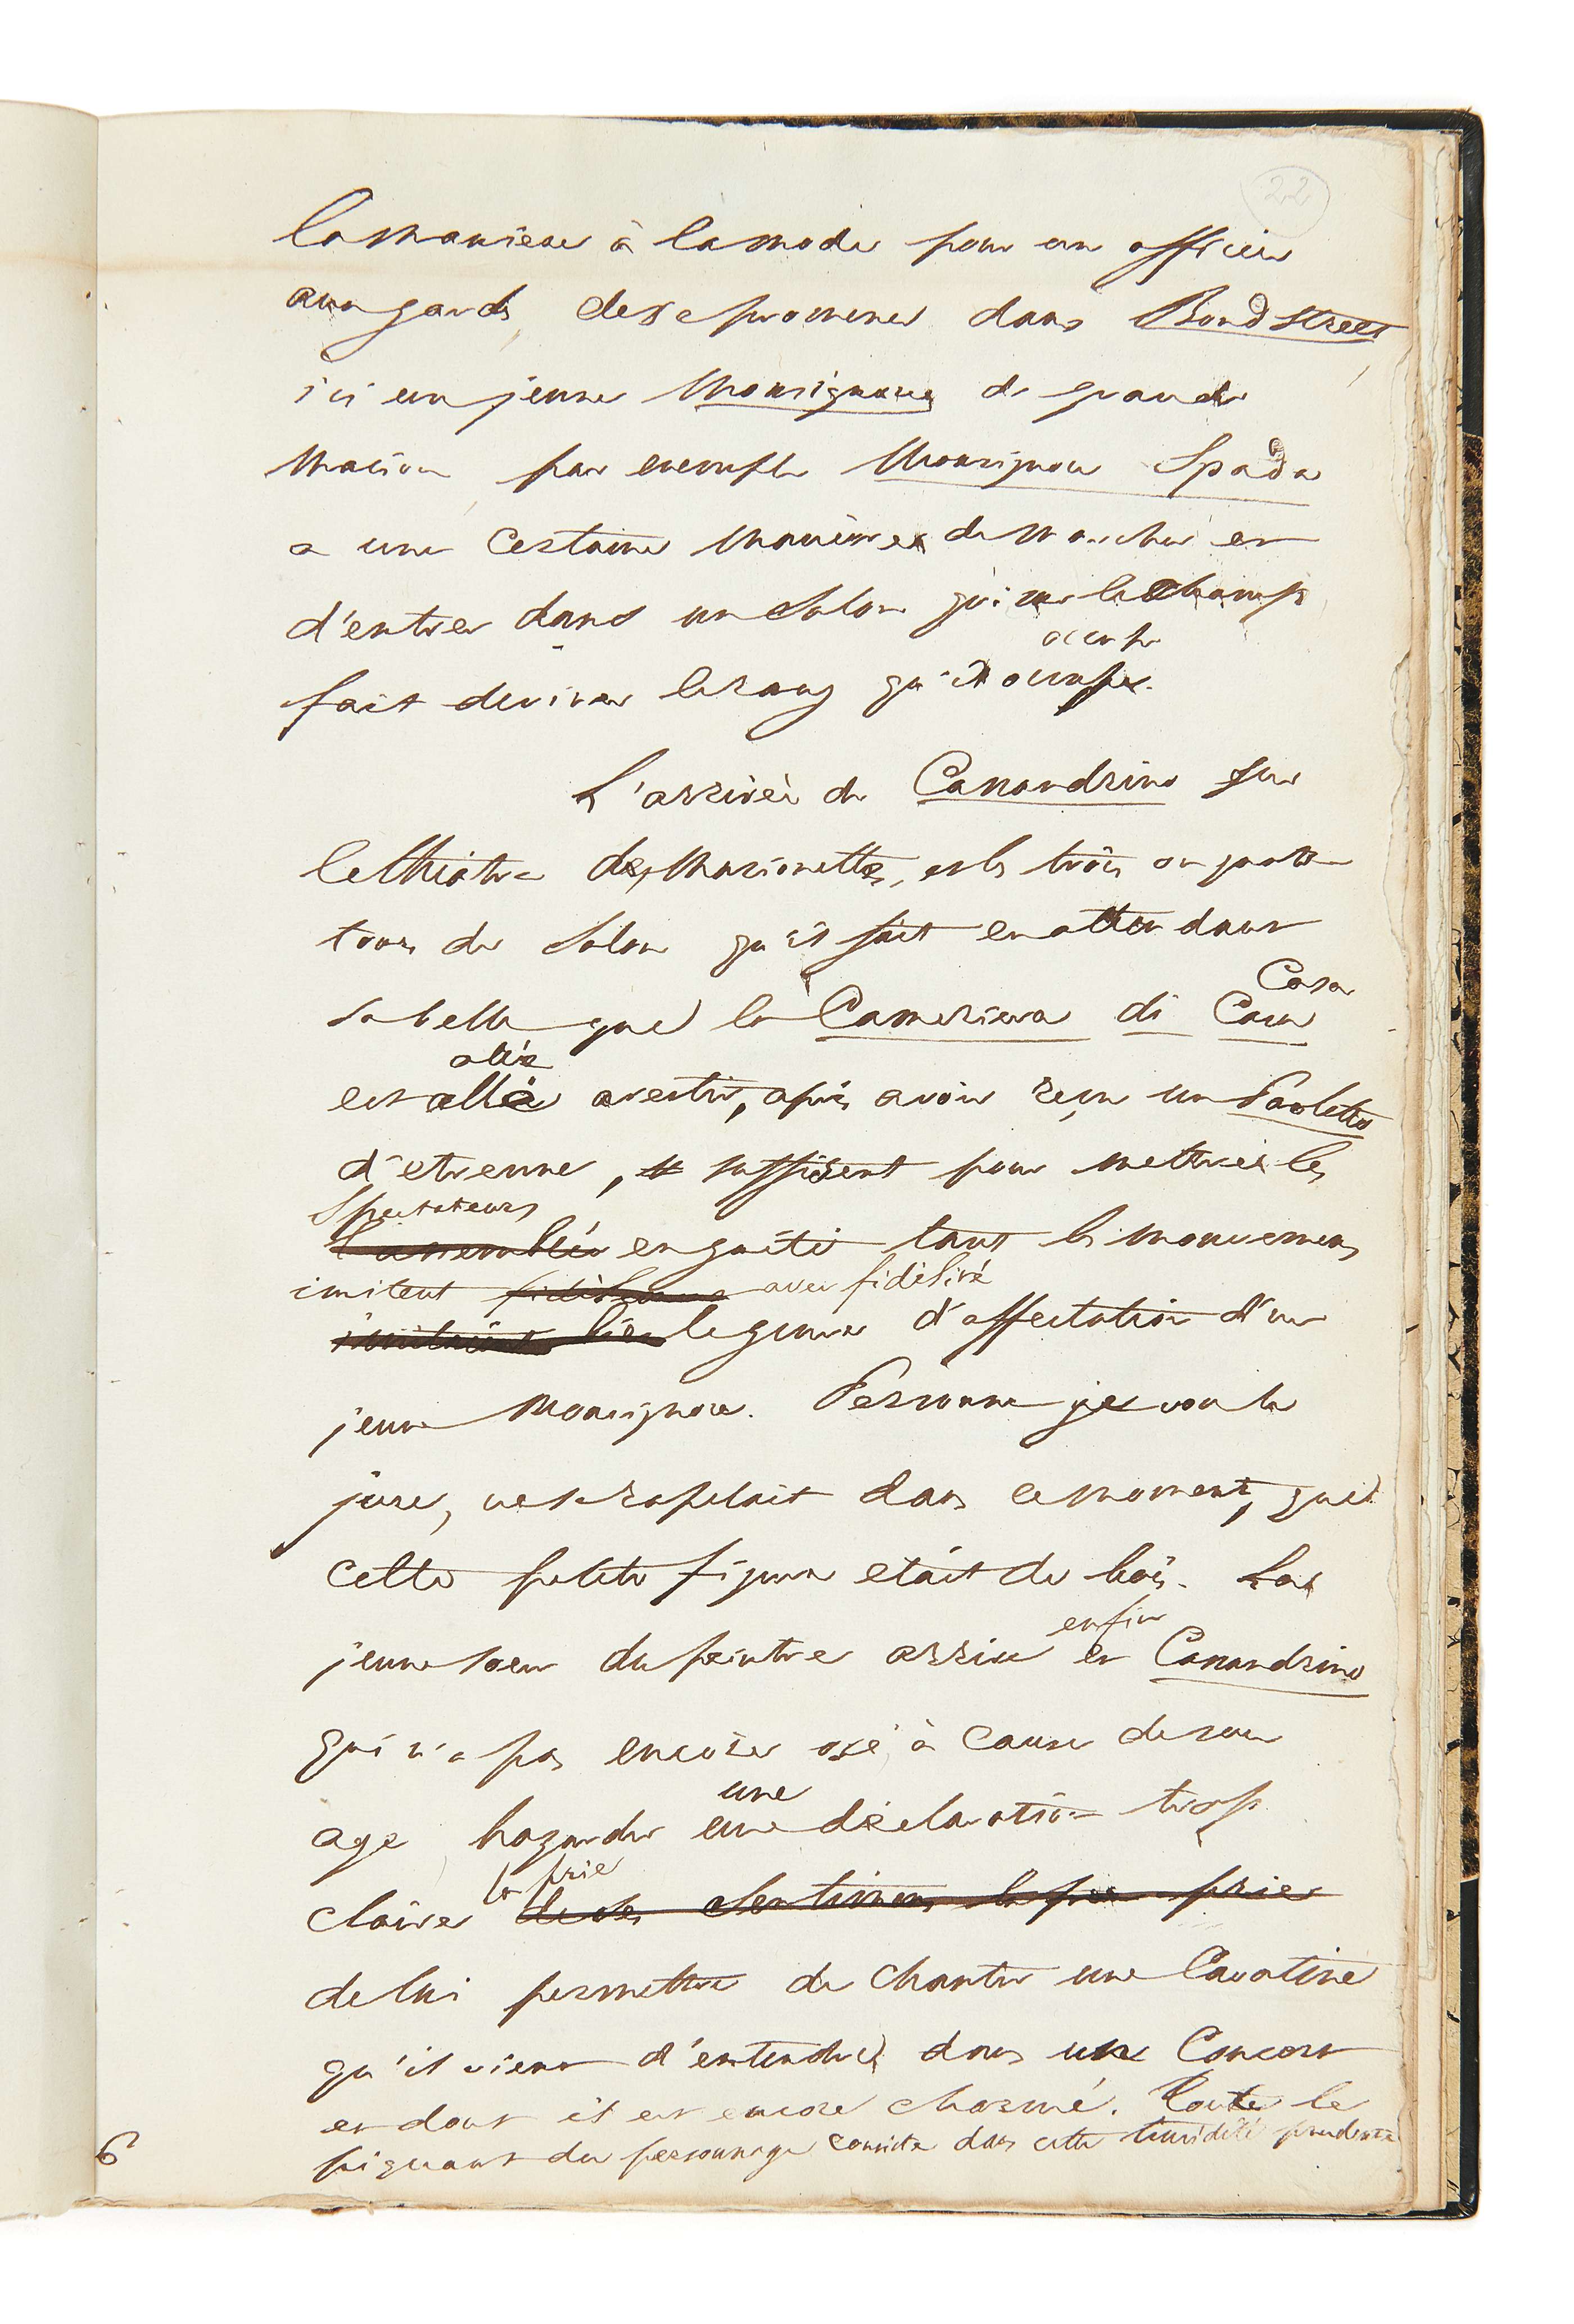 22
la maniere à la mode pour un officier
aux gardes, de se promener dans Bond Street
ici un jeune Monsignore de grande
Maison par exemple Monsignore Spada
a une certaine maniere de marcher et
d'entrer dans un salon qui sur le champ
occupe
fait deviner le rang qu'il occupe.
L'arrivée de Cassandrino sur
le théatre des Marionettes, et les trois ou quatre
tours de Salon qu'il fait en attendant
Casa
sa belle que la Cameriera di Casa
allée
est allée avertir, après avoir reçu un Paoletto
d'etrenne, suffisent pour mettre les
Spectateurs
l'assemblée en gaîté tant les mouvemens
imitent fidèlement avec fidélité
imitaient bien le genre d'affectation d'un
jeune Monsignore. Personne je vous le
jure, ne se rapelait dans ce moment, que
cette petite figure etait de bois. La
enfin
jeune soeur du peintre arrive et Cassandrino
qui n'a pas encore osé à cause de son
une
age hazarder une déclaration trop
la prie
claire de ses sentimens la prie
de lui permettre de chanter une Cavatine
qu'il vient d'entendre dans un Concert
et dont il est encore charmé. Tout le
piquant du personnage consiste dans cette timidité prudente
6